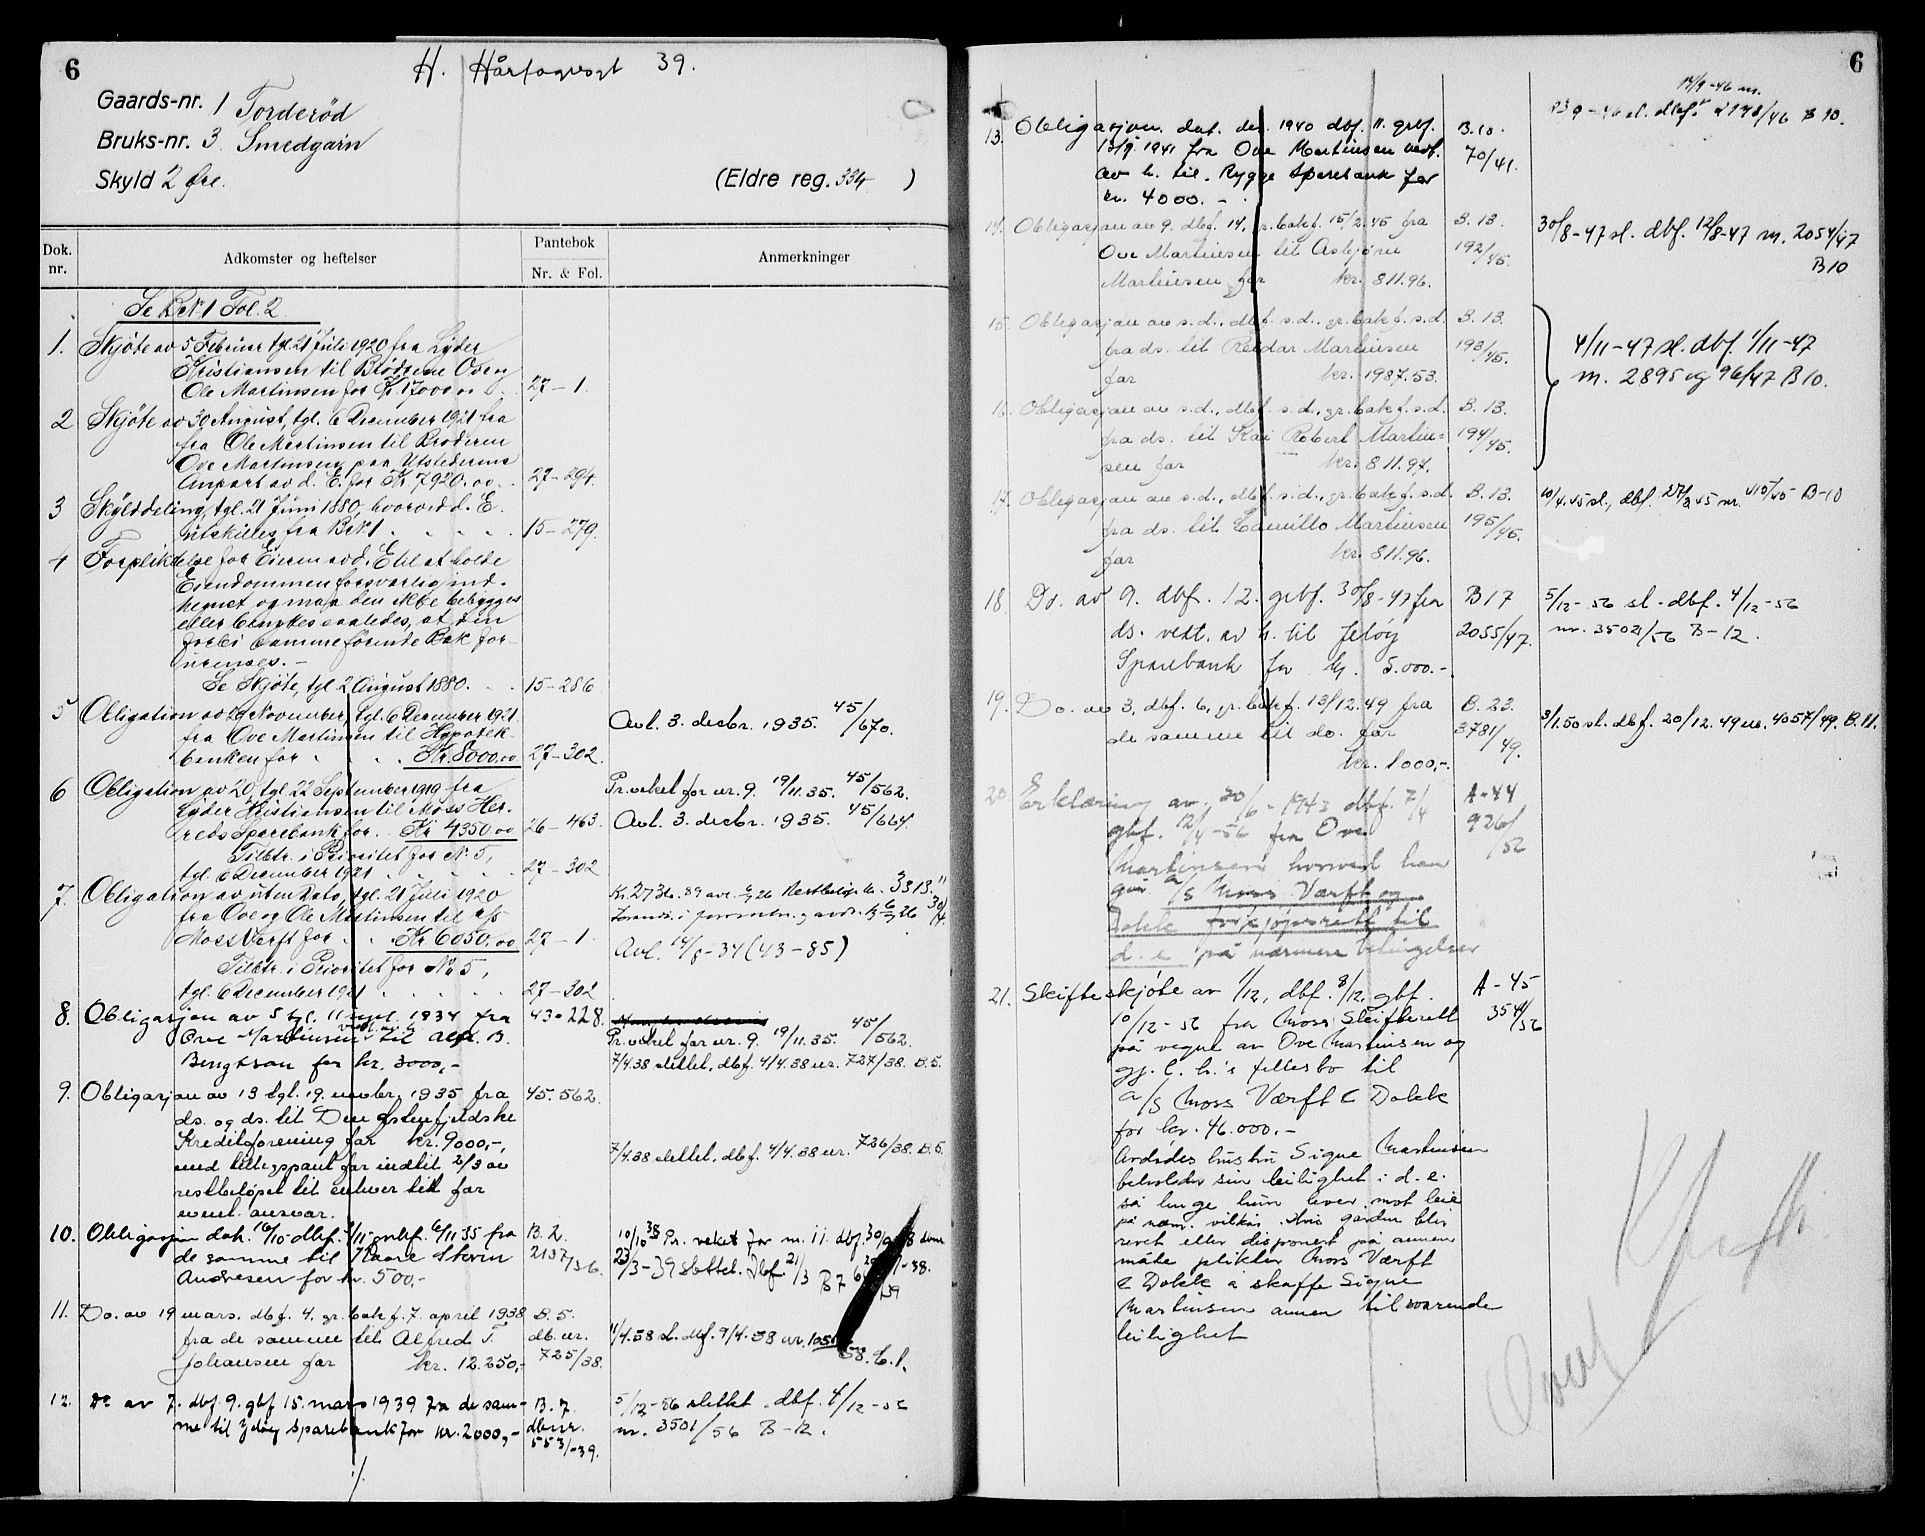 6
H. Hårfagresgt 39.
Gaards-nr. 1 Torderød
Bruks-nr. 3 Smedgarn
Skyld 2 Øre.
(Eldre reg. 334 )
Dok. nr.
Adkomster og heftelser
Pantebok
Nr. & Fol.
Anmerkninger
Se Bk№1 Fol. 2.
1. Skjøte av 5 Februar tgl. 21 Juli 1920 fra Lyder
Kristiansen til Brødrene Ove og
Ole Martinsen for Kr. 17000.00 27-1.
2 Skjøte av 30 August, tgl. 6 December 1921 fra
fra Ole Martinsen til Broderen
Ove Martinsen paa Utstederens
Anpart av d. E. for Kr 7920.00. 27-294.
3 Skylddeling, tgl. 21 Juni 1880, hvorved d. E.
utskilles fra Bk№1 . . . . 15-279.
4 Forpliktelse for Eieren av d. E til at holde
Eiendommen forsvarlig ind-
hegnet og maa den ikke bebygges
eller benyttes saaledes, at den
forbi samme førende Bæk for-
urenses. -
Se Skjøte, tgl 2 August 1880. . . 15-286
5 Obligation av 29 November, tgl. 6 December 1921.
fra Ove Martinsen til Hypotek-
banken for . . . . Kr. 8000.00 27-302.
Avl. 3. desbr. 1935. 45/670.
6 Obligation av 20, tgl. 22 September 1919 fra
Lyder Kristiansen til Moss Her-
reds Sparebank for. Kr 4350.00 26-463.
Pr. veket for nr. 9. 19/11.35. 45/562.
Avl. 3. desbr. 1935. 45/664.
Tilstr. i Prioritet for № 5,
tgl. 6 December 1921 . . . . 27-302
7. Obligation av uten Dato, tgl. 21 Juli 1920
fra Ove og Ole Martinsen til a/s
Moss Verft for . . Kr 6050.00 27-1.
Avl. 14/8-34 (43-85)
Tilstr. i Prioritet for № 5,
tgl. 6 December 1921 . . . . 27-302
8. Obligasjon av 5 tgl. 11 sept. 1934 fra 43-228.
Ove Martinsen til Alf. B.
Bengtson for kr. 3000,-
Pr. veket for nr. 9. 19/11.35. 45/562.
7/4.38 slettet, dbf. 4/4.38 nr. 727/38. B.5.
9. Obligasjon av 13 tgl. 19. novbr. 1935 fra 45.562.
ds. og ds. til Den østenfjeldske
Kreditforening for kr. 9000,-,
med tilleggspant for indtil 2/3 av
restbeløpet til enhver tid for
event. ansvar.
7/4.38 slettet, dbf. 4/4.38 nr. 726/38. B.5.
10. Obligasjon dat. 16/10 dbf. /11 grbf. 6/11 35 fra B. 2.
de samme til Kaare Steen 2137/36.
Andresen for kr. 500,-
11. Do. av 19 mars. dbf. 4. gr.bakf. 7. april 1938 B. 5.
fra de samme til Alfred T. db. nr.
Johansen for kr. 12.250,- 725/38.
12. Do av 7. dbf. 9. gbf 15. mars 1939 fra de sam- B. 7.
me til Jeløy Sparebank for kr. 2000,- dbnr. 553/-39.
5/12-56 slettet. dbf. 4/12-56
nr. 3501/56 B-12.
6
13. Obligasjon. dat. des. 1940 dbf. 11. grbf. B.10.
13/9. 1941 fra Ove Martinsen vedt. 70/41.
av h. til. Rygge Sparebank for
kr. 4000. -
14. Obligasjon av 9. dbf. 14, gr.bakf. 15/2.45 fra B. 13.
Ove Martinsen til Asbjørn 192/45.
Martinsen for kr. 811.96.
30/8-47 sl. dbf. 12/8-47 nr. 2054/47
B10
15. Obligasjon av s.d., dbf. s.d., gr.bakf. s.d. B. 13.
fra ds. til Reidar Martinsen 193/45.
for kr. 1987.53.
4/11-47 sl. dbf. 1/11-47
nr. 2895 og 96/47 B10.
16. Obligasjon av s.d., dbf. s.d., gr.bakf. s.d. B. 13.
fra ds. til Kai Robert Martin= 194/45.
sen for kr. 811.97.
17. Obligasjon av s.d., dbf. s.d., gr.bakf. s.d. B. 13.
fra ds. til Camillo Martinsen 195/45.
for kr. 811.96.
18. Do. av 9. dbf. 12. grbf. 30/8-47 fra B17
ds. vedt. av h. til Jeløy 2055/47.
Sparebank for kr. 5.000.-
5/12-56 sl. dbf. 4/12-56
nr. 3502/56 B-12.
19. Do. av 3, dbf. 6, gr.bakf. 13/12.49 fra B. 23.
de samme til do. for 3781/49.
kr. 1000,-.
3/1.50 sl. dbf. 20/12.49 nr. 4057/49. B.11.
20. Erklæring av. 20/6-1943 dbf. 7/4 A-44
gbf. 12/4-56 fra Ove 926/56
Martinsen hvorved han
gir a/s Moss Værft og
Dokk forkjøpsrett til
d. e. på nærmere betingelser
21. Skifteskjøte av 1/12, dbf. 8/12, gbf. A-45
10/12-56 fra Moss Skifterett 3541/56
på vegne av Ove Martinsen og
gj. l. h.'s fellesbo til
a/s Moss Værft & Dokk
for kr. 46.000.-
Avdødes hustru Signe Martinsen
beholder sin leilighet i d. e.
så lenge hun lever mot leie
på nærm. vilkår. Hvis gården blir
revet eller disponert på annen
måte plikter Moss Værft
& Dokk å skaffe Signe
Martinsen annen tilsvarende
leilighet